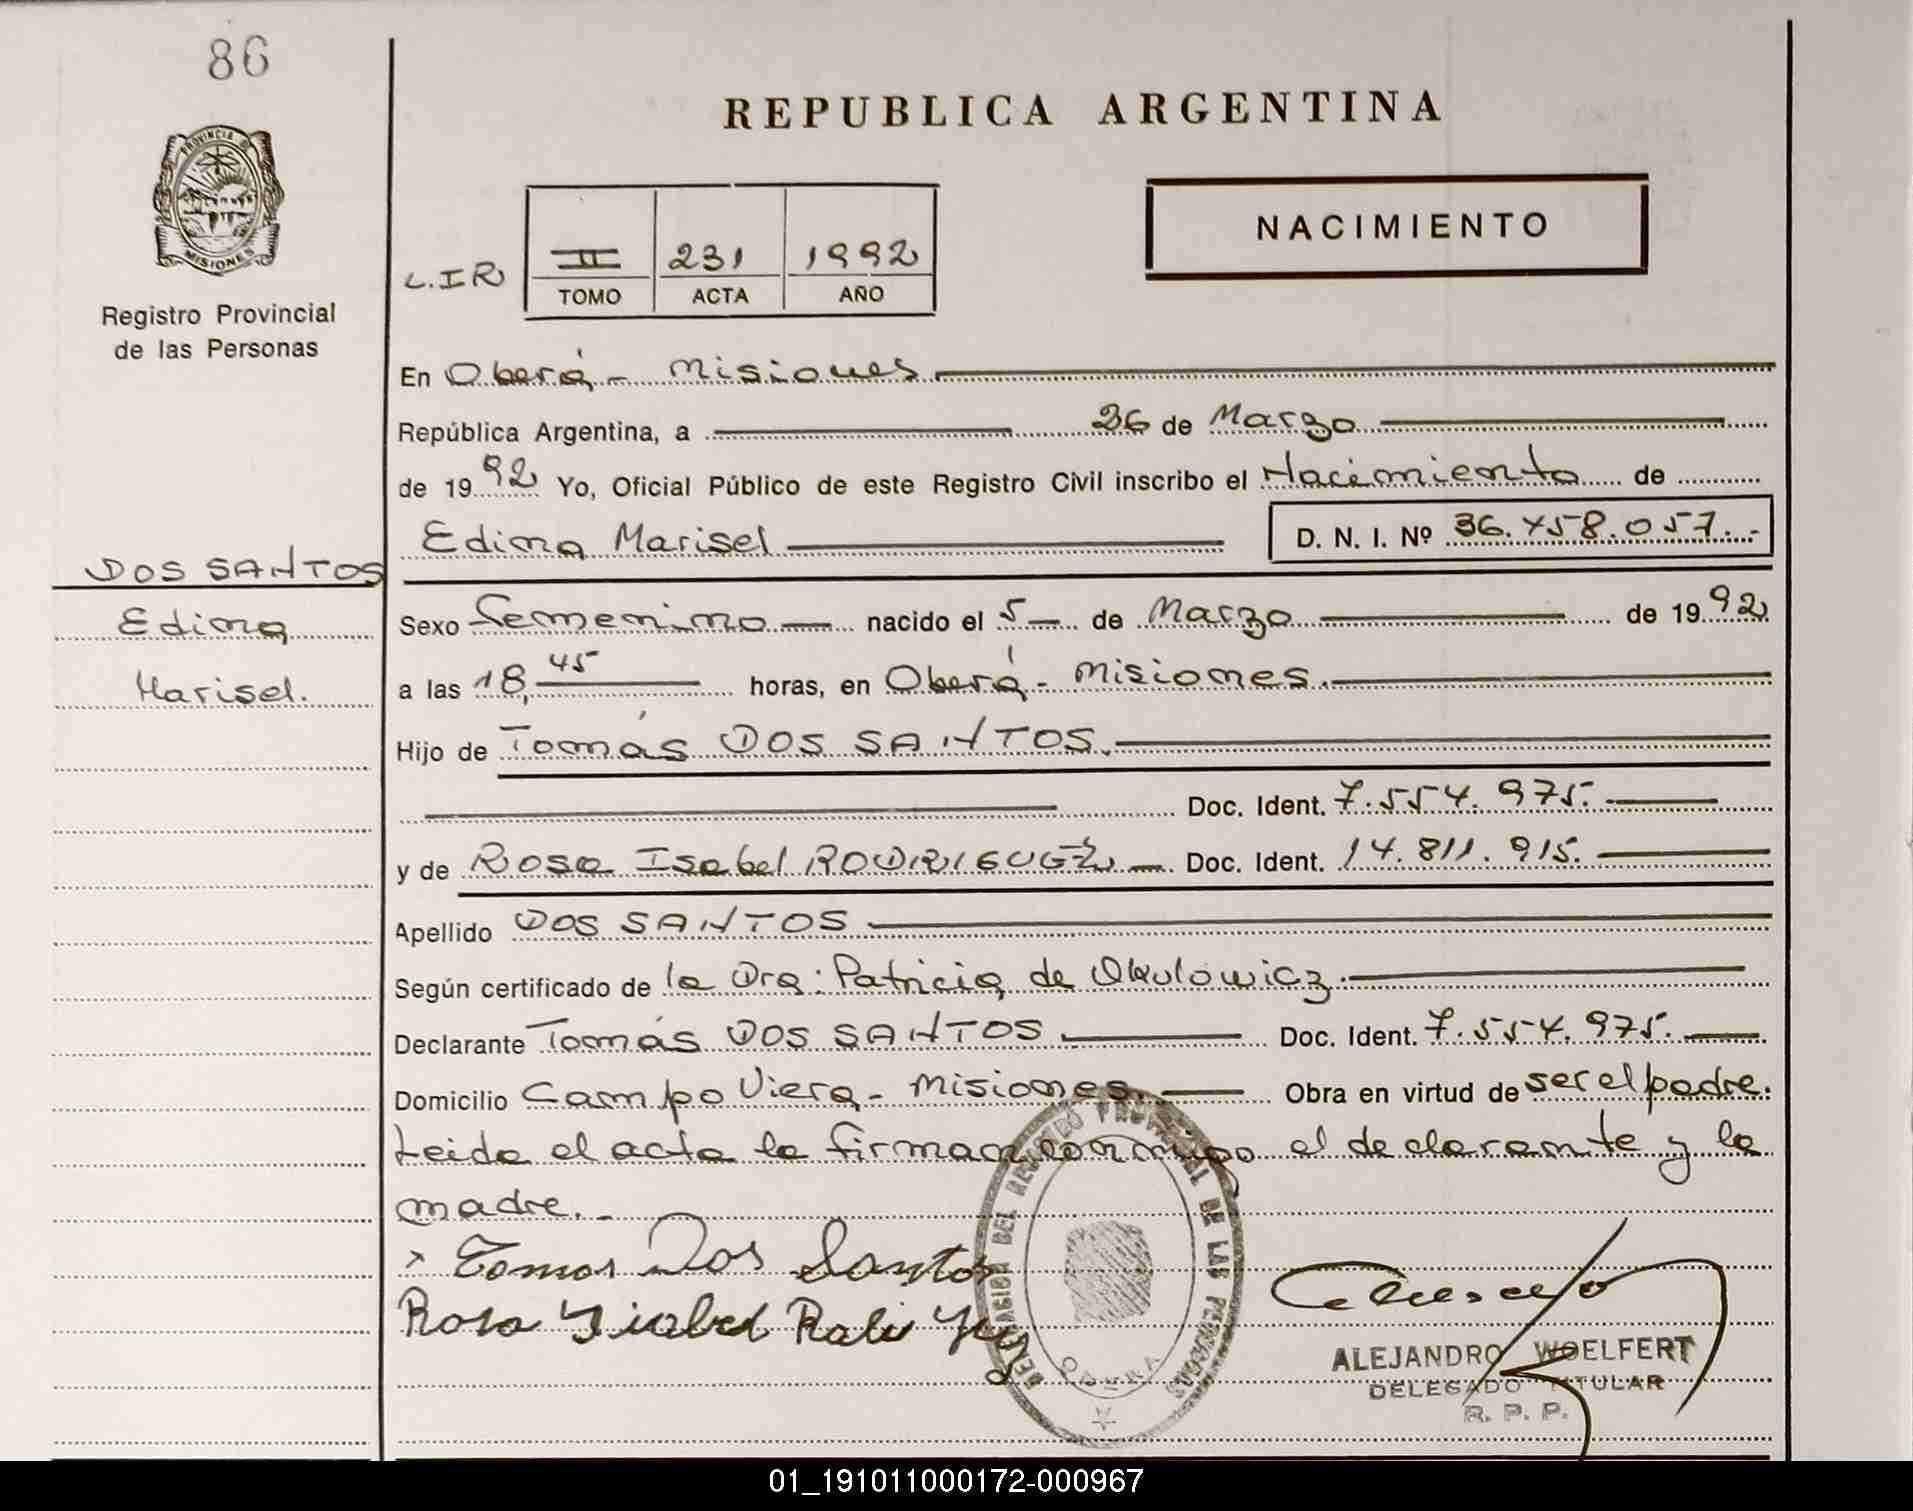 86
REPUBLICA ARGENTINA
PROVINCIA DE
MISIONES
Registro Provincial
de las Personas
NACIMIENTO
L.IR II 231 1992
TOMO ACTA AÑO
En Oberá - Misiones
República Argentina, a 26 de Marzo
de 1992 Yo, Oficial Público de este Registro Civil inscribo el Nacimiento de
Edima Marisel D. N. I. Nº 36.458.057.-
DOS SANTOS
Edima
Marisel.
Sexo Femenino nacido el 5 de Marzo de 1992
a las 18,45 horas, en Oberá - Misiones.
Hijo de Tomás DOS SANTOS.
Doc. Ident. 7.554.975.
y de Rosa Isabel RODRIGUEZ Doc. Ident. 14.811.915.
Apellido DOS SANTOS
Según certificado de la Dra: Patricia de Okulowicz.
Declarante Tomás DOS SANTOS. Doc. Ident. 7.554.975.
Domicilio Campo Viera - Misiones. Obra en virtud de ser el padre.
Leida el acta la firman conmigo el declarante y la
madre.-
x Tomas Dos Santos
Rosa Ysabel
DELEGACION DEL REGISTRO PROVINCIAL DE LAS PERSONAS
OBERA
ALEJANDRO WOELFERT
DELEGADO TITULAR
R. P. P.
01_191011000172-000967